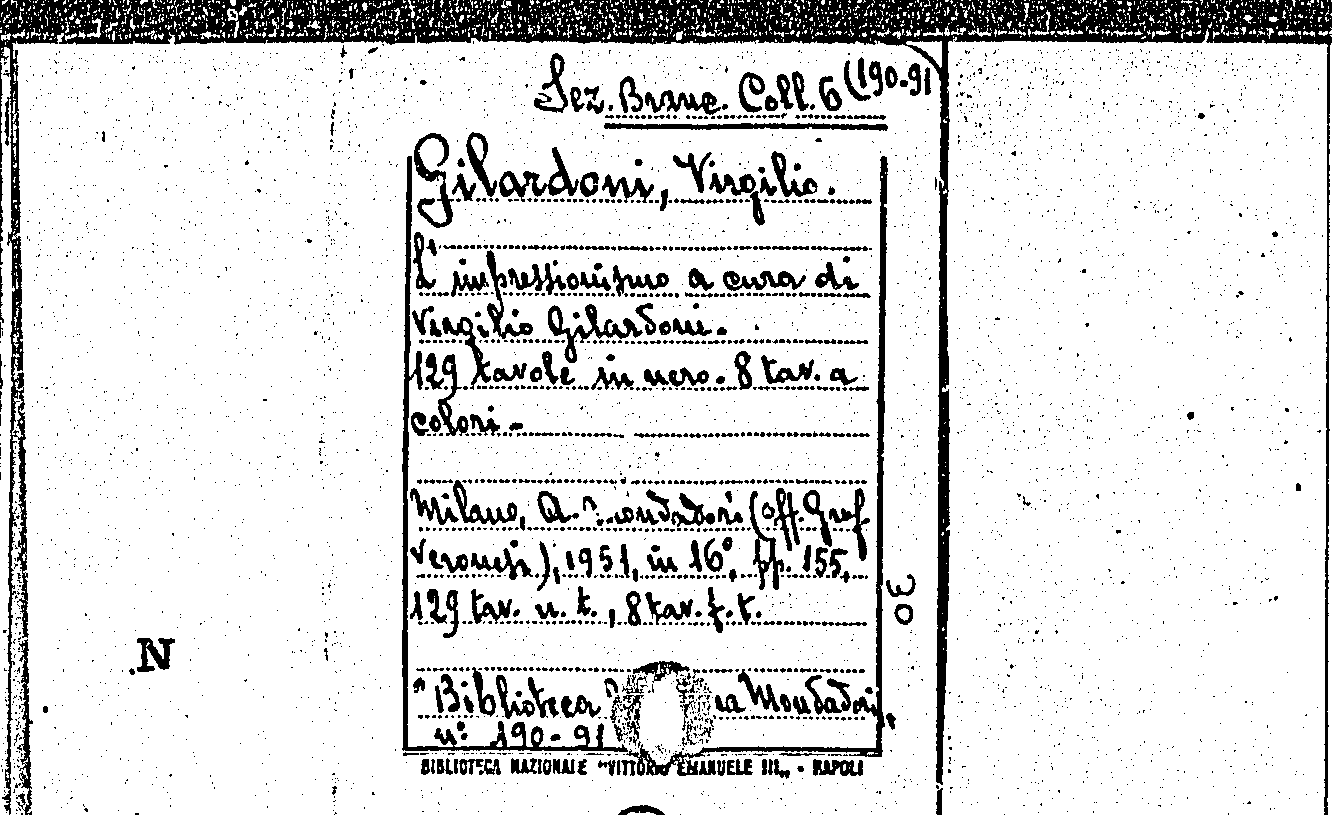 Sez. Branc. Coll. 6 (190-91
Gilardoni, Virgilio.
L'impressionismo a cura di
Virgilio Gilardoni.
129 tavole in nero. 8 tav. a
colori -
Milano, A. Mondadori (Off. Graf.
Veronesi), 1951, in 16°, pp. 155,
129 tav. n. t., 8 tav. f. t.
"Biblioteca Mondadori,
n° 190-91
30
N
BIBLIOTECA NAZIONALE "VITTORIO EMANUELE III„ - NAPOLI